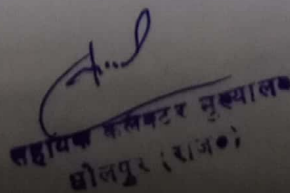 सहायक कलक्टर मुख्यालय
धौलपुर (राज०)